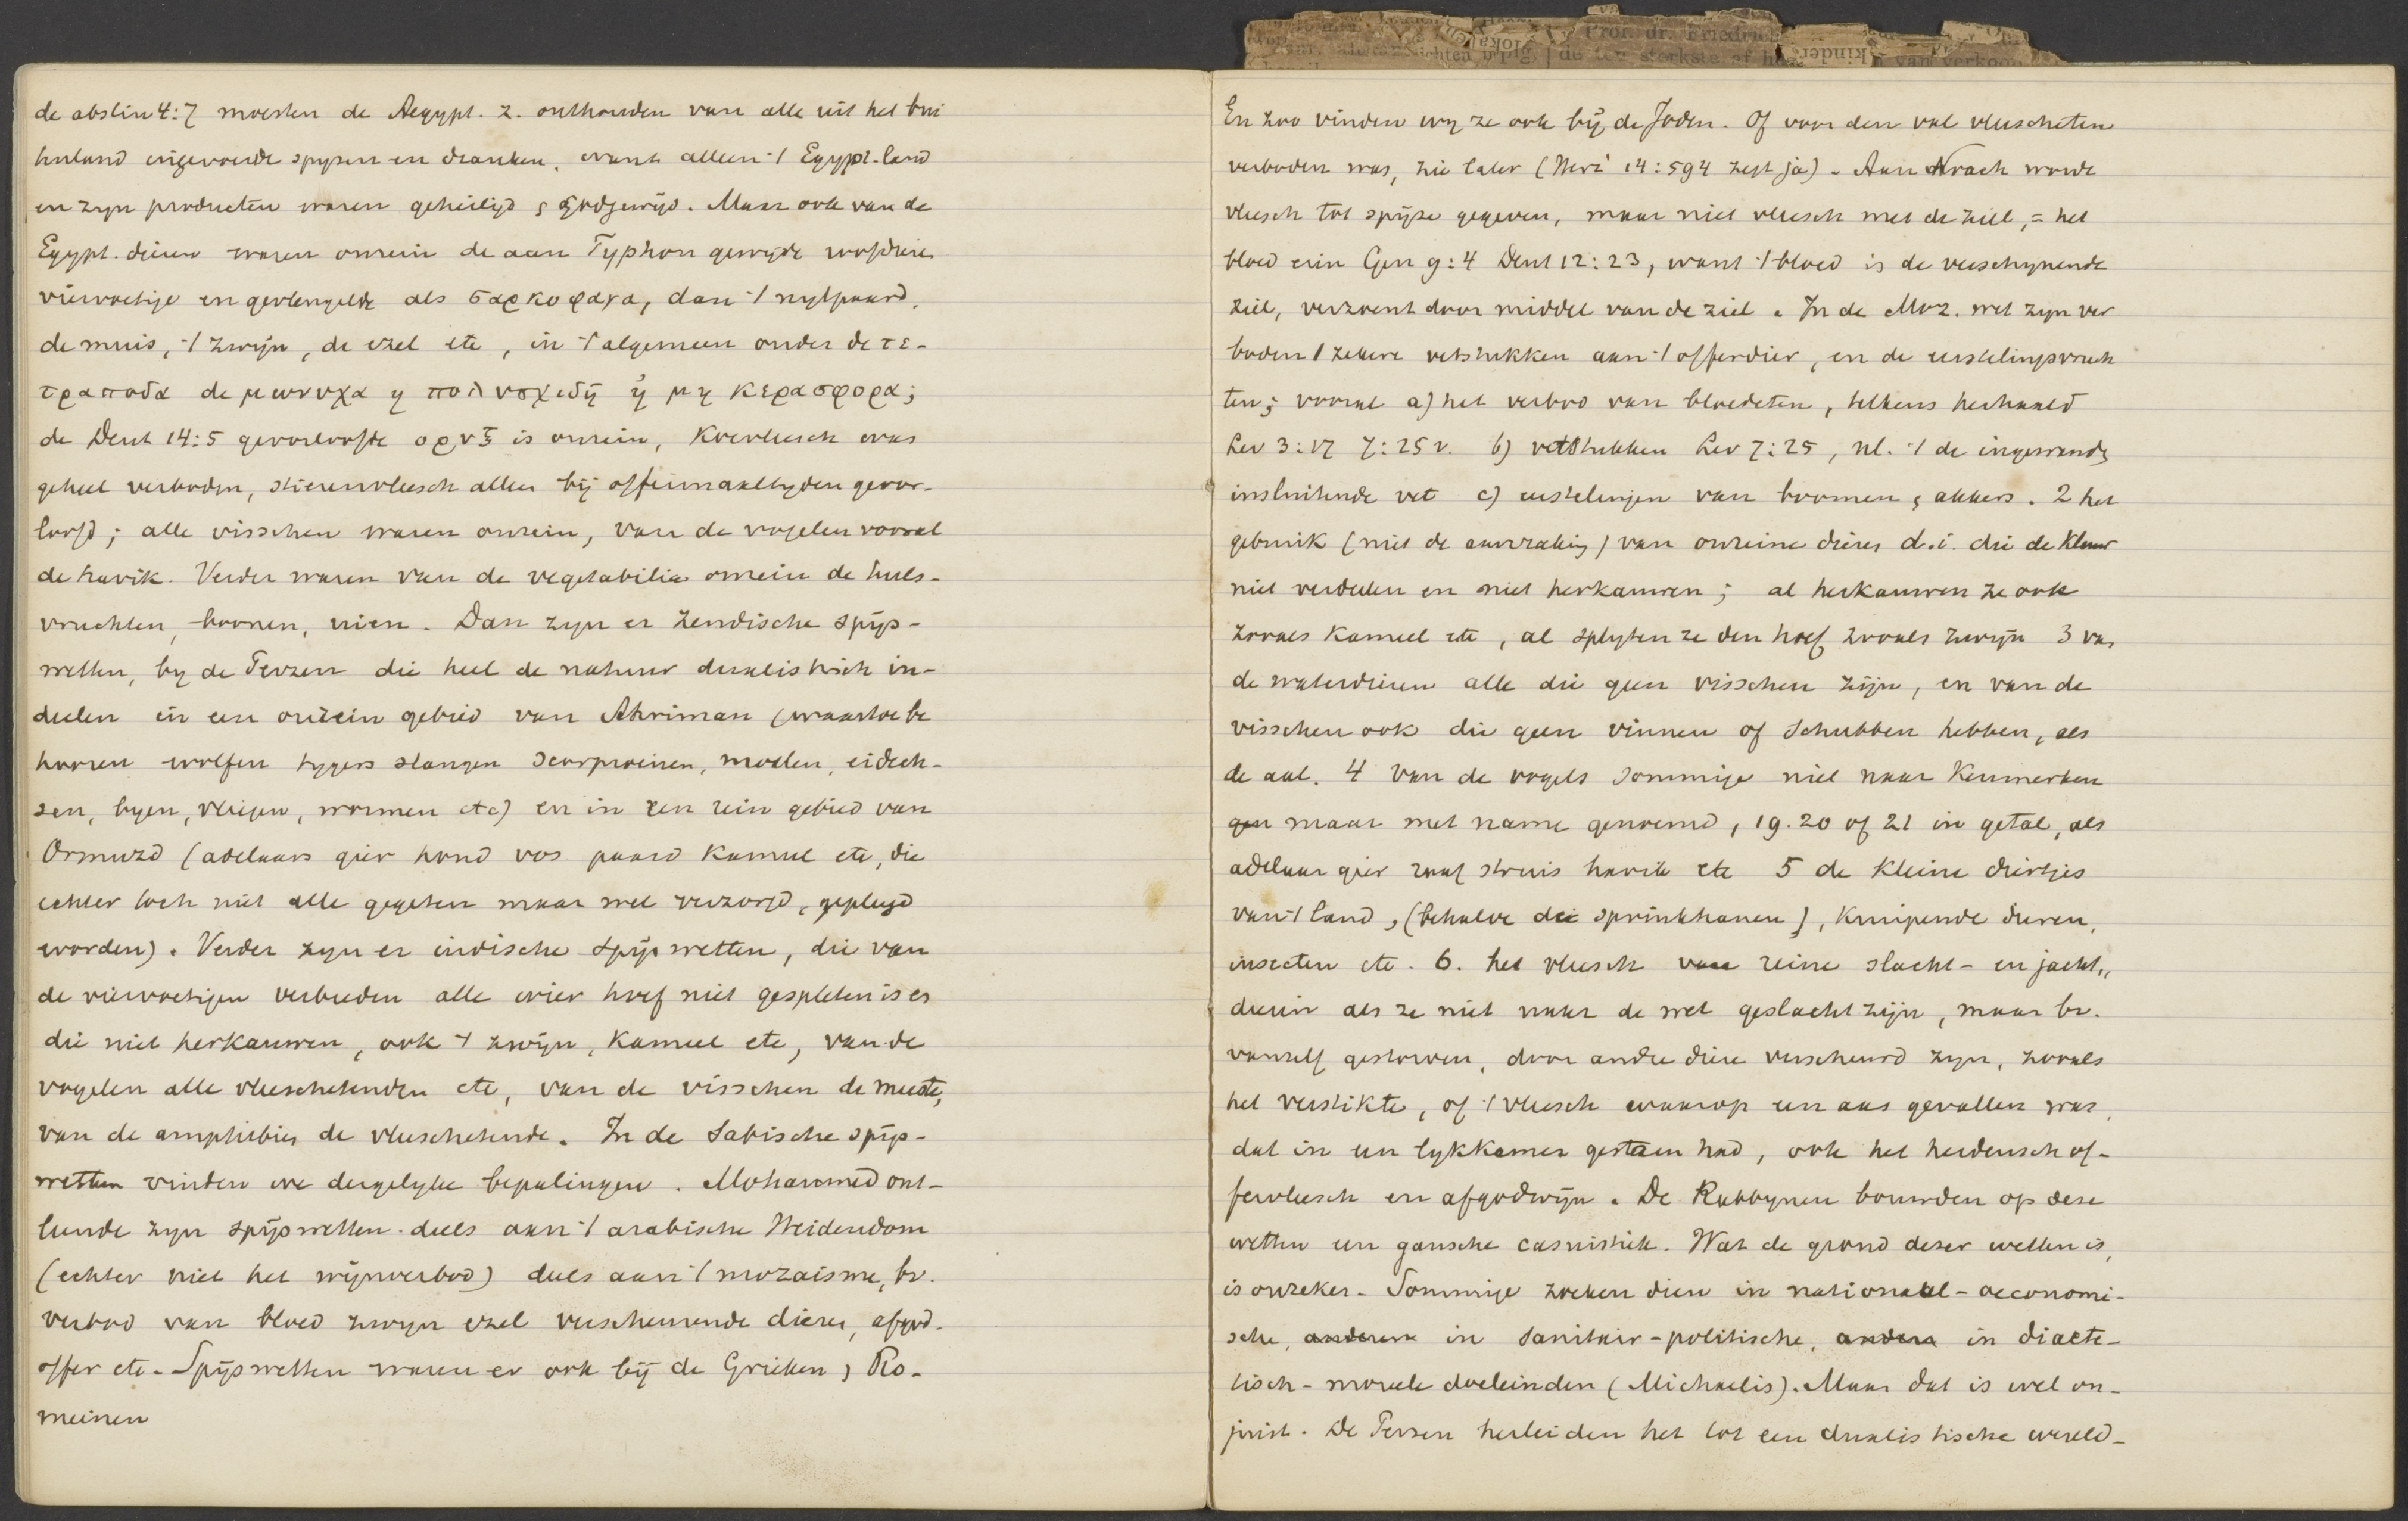 de abstin 4:7 moesten de Aegypt. z. onthouden van alle uit het bui
tenland ingevoerde spyzen en dranken, want alleen 't Egypt. land
en zyn producten waren geheiligd & godgewijd. Maar ook van de
Egypt. dieren waren onrein de aan Typhon gewyde
viervoetige en gevleugelde als σαρκοφαγα, dan 't nylpaard,
de muis, 't zwijn, de ezel etc, in 't algemeen onder de τε-
τραποδα de μωνυχα η πολυσχιδη ἠ μη κερασφορα;
de Deut 14:5 geoorloofde ορυξ is onrein, Koevleesch was
geheel verboden, stierenvleesch alleen bij offermaaltyden geoor-
loofd; alle visschen waren onrein, van de vogelen vooral
de havik. Verder waren van de vegetabilia onrein de huls-
vruchten, boonen, uien. Dan zyn er Zendische spijs-
wetten, by de Perzen die heel de natuur dualistisch in-
deelen in een onrein gebied van Ahriman (waartoe be
hooren wolfen tygers slangen scorpioenen, mollen, eidech-
sen, byen, vliegen, wormen etc) en in een rein gebied van
Ormuzd (adelaars gier hond vos paard kameel etc, die
echter toch niet alle gegeten maar wel verzorgd, gepleegd
worden). Verder zyn er indische spijswetten, die van
de viervoetigen verbieden alle wier hoef niet gespleten is en
die niet herkauwen, ook 't zwijn, kameel etc, van de
vogelen alle vleeschetenden etc, van de visschen de meeste,
van de amphibiën de vleeschetende. In de Sabische spijs-
wetten vinden we dergelyke bepalingen. Mohammed ont-
leende zyn spijswetten deels aan 't arabische Heidendom
(echter niet het wijnverbod) deels aan 't mozaisme, bv.
verbod van bloed zwyn ezel verscheurende dieren, afgod-
offer etc. Spijswetten waren er ook bij de Grieken & Ro-
meinen
En zoo vinden wy ze ook bij de Joden. Of voor den val vleescheten
verboden was, zie later (Herz' 14:594 zegt ja). Aan Noach werde
vleesch tot spijze gegeven, maar niet vleesch met de ziel, = het
bloed erin Gen 9:4 Deut 12:23, want 't bloed is de verschynende
ziel, verzoent door middel van de ziel. In de Moz. wet zyn ver
boden 1 zekere vetstukken aan 't offerdier, en de eerstelingsvruch
ten; vooral a) het verbod van bloedeten, telkens herhaald
Lev 3:17 7:25 v. b) vetstukken Lev 7:25, nl. 't de ingewanden
insluitende vet c) eerstelingen van boomen & akkers. 2 het
gebruik (niet de aanraking) van onreine dieren d.i. die de klauw
niet verdeelen en niet herkauwen; al herkauwen ze ook
zooals Kameel etc, al splyten ze den hoef zooals zwijn 3 van
de waterdieren alle die geen visschen zijn, en van de
visschen ook die geen vinnen of schubben hebben, als
de aal. 4 Van de vogels sommige niet naar Kenmerken
maar met name genoemd, 19. 20 of 21 in getal, als
adelaar gier raaf struis havik etc 5 de kleine diertjes
van 't land, (behalve de sprinkhanen), Kruipende dieren,
insecten etc. 6. het vleesch van reine slacht- en jacht„
dieren als ze niet naar de wet geslacht zijn, maar bv.
vanzelf gestorven, door andre diere verscheurd zyn, zooals
het verstikte, of 't vleesch waarop een aas gevallen was,
dat in een lykkamer gestaan had, ook het heidensch of-
fervleesch en afgodwijn. De Rabbynen bouwden op deze
wetten een gansche casuistiek. Wat de grond dezer wetten is,
is onzeker. Sommige zoeken dien in nationaal-oeconomi-
sche, anderen in sanitair-politische, andere in diaete-
tisch-moreele doeleinden (Michaelis). Maar dat is wel on-
juist. De Perzen herleiden het tot een dualistische wereld-